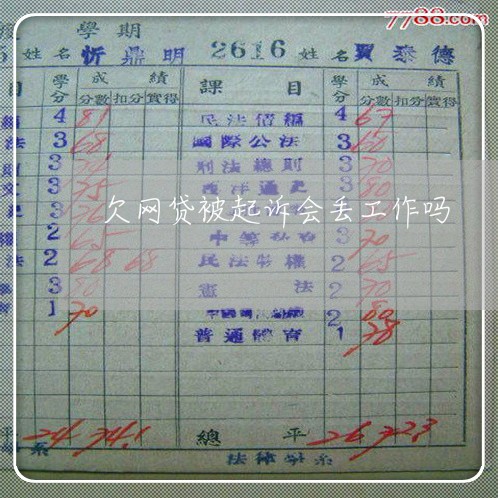 7788.com
學期
姓名 忻鼎明 2616 姓名 賈泰德
目 學分 成績 課目 學分 成績
分數 扣分 實得 分數 扣分 實得
4 81 民法債編 4 67
法 3 68 國際公法 3 60
3 刑法總則 3 70
3 75 西洋通史 3 80
欠网贷被起诉会丢工作吗
2 65 3 70
法 2 68 68 民法物權 2 65
3 80 憲法 2 70
1 70 2 80
普通體育 1 78
平 24 74.1 總平 26 72.3
系 法律學系